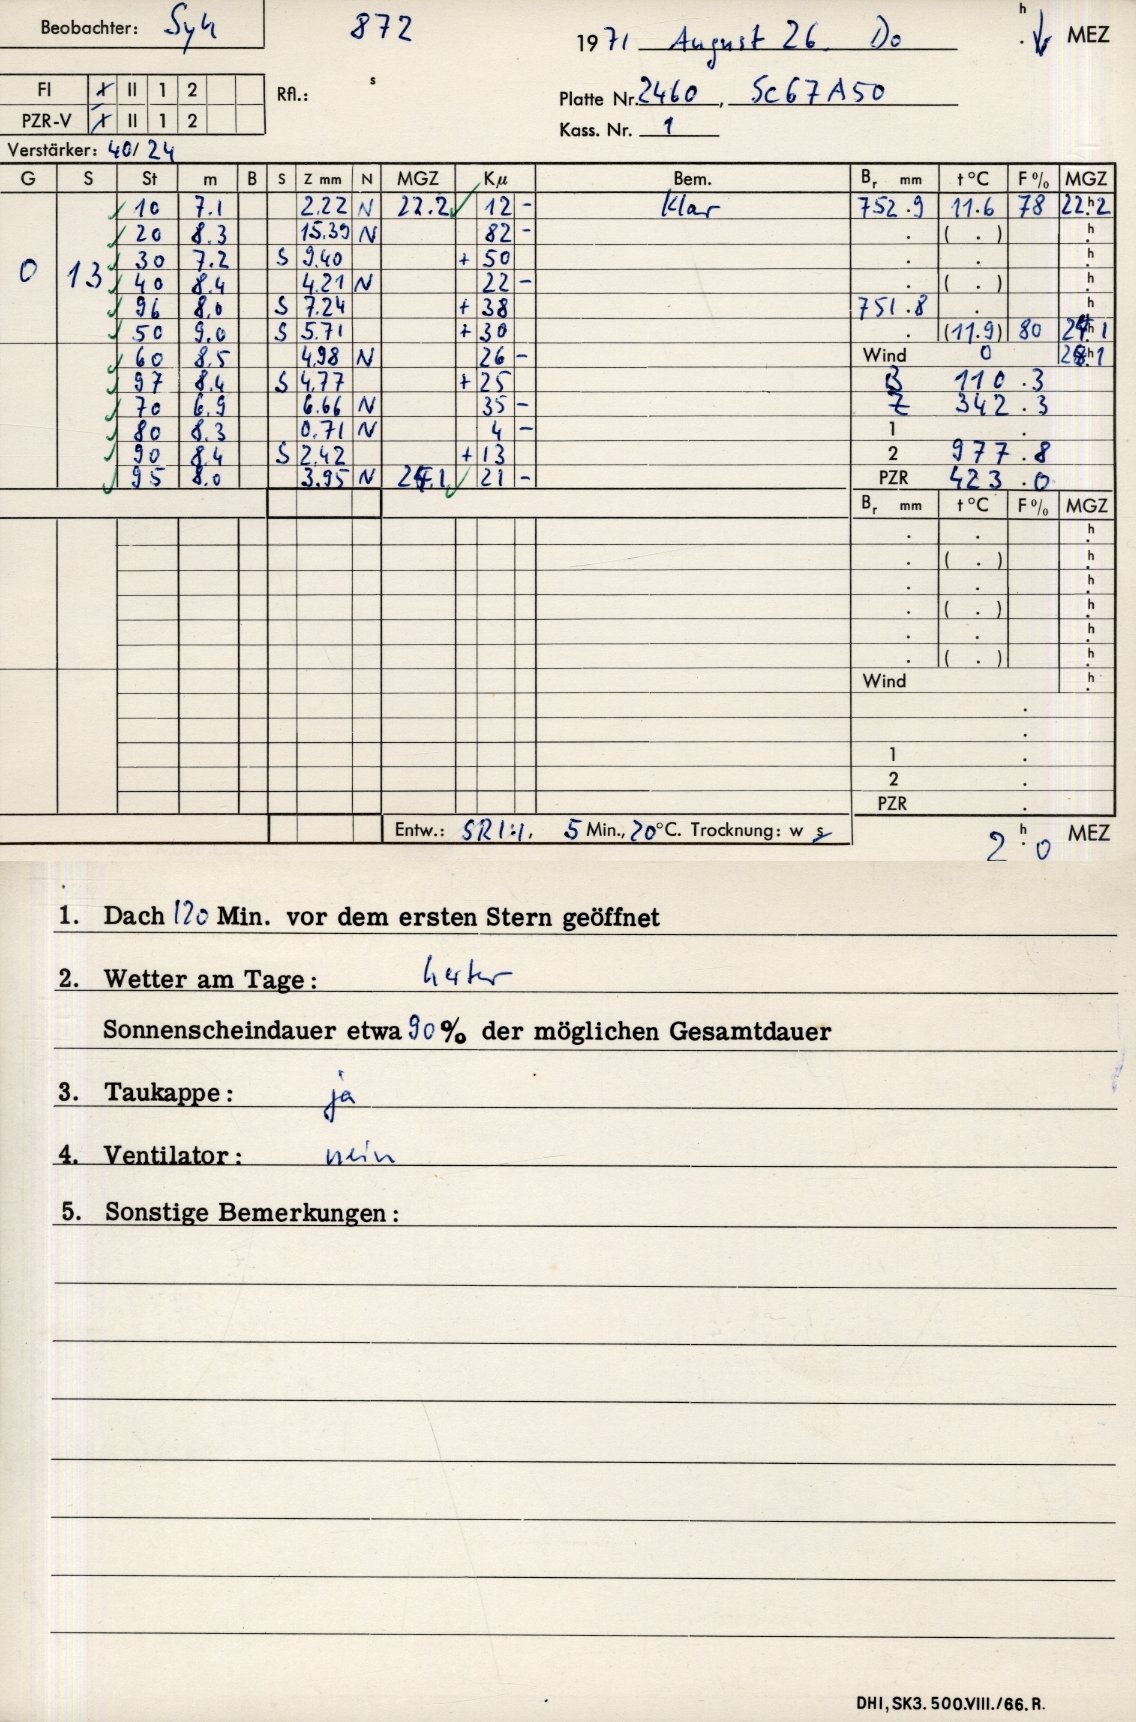 Beobachter: Syh 872 1971 August 26. Do h . MEZ
FI I II 1 2 Rfl.: s Platte Nr. 2460, Sc67A50
PZR-V I II 1 2 Kass. Nr. 1
Verstärker: 40/24
G S St m B S Z mm N MGZ Kμ Bem. Br mm t °C F% MGZ
10 7.1 2.22 N 22.2 12 - Klar 752.9 11.6 78 22.h2
20 8.3 15.39 N 82 - . ( . ) h.
0 13 30 7.2 S 9.40 + 50 . . h.
40 8.4 4.21 N 22 - . ( . ) h.
96 8.0 S 7.24 + 38 751.8 . h
50 9.0 S 5.71 + 30 . (11.9) 80
60 8.5 4.98 N 26 - Wind 0
97 8.4 S 4.77 + 25 B 110.3
70 6.9 6.66 N 35 - Z 342.3
80 8.3 0.71 N 4 - 1 .
90 8.4 S 2.42 + 13 2 977.8
95 8.0 3.95 N 21 - PZR 423.0
Br mm t °C F% MGZ
. . h.
. ( . ) h.
. . h.
. ( . ) h.
. . h.
. ( . ) h.
Wind h.
.
.
1 .
2 .
PZR .
Entw.: SR 1:1, 5 Min., 20°C. Trocknung: w s 2 h. 0 MEZ
1. Dach 120 Min. vor dem ersten Stern geöffnet
2. Wetter am Tage: heiter
Sonnenscheindauer etwa 90% der möglichen Gesamtdauer
3. Taukappe: ja
4. Ventilator: nein
5. Sonstige Bemerkungen:
DHI, SK3. 500.VIII./66. R.